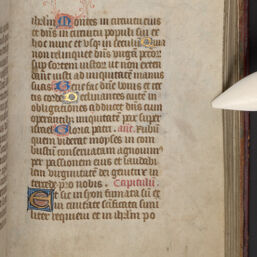 ihrlm Montes in circuitu eius
et dns in circuitu populi sui ex
hoc nunc et usq in seculu Quia
non relinquet dns virga pctor
sup sortem iustor ut non exten
dant iusti ad iniquitate manus
suas Benefac dne bonis et rec
tis corde Declinantes aute in
obligationes adducet dns cum
operantib iniquitate pax super
israel Gloria patri. ant. Rubu
quem viderat moyses in com
bustu conseruatam agnouim
per passionem eius et laudabi
lem virginitate dei genitrix in
tercede pro nobis. Capitulu.
Et sic in syon firmata su et
in ciuitate scificata simi
liter requieui et in ihrlm po